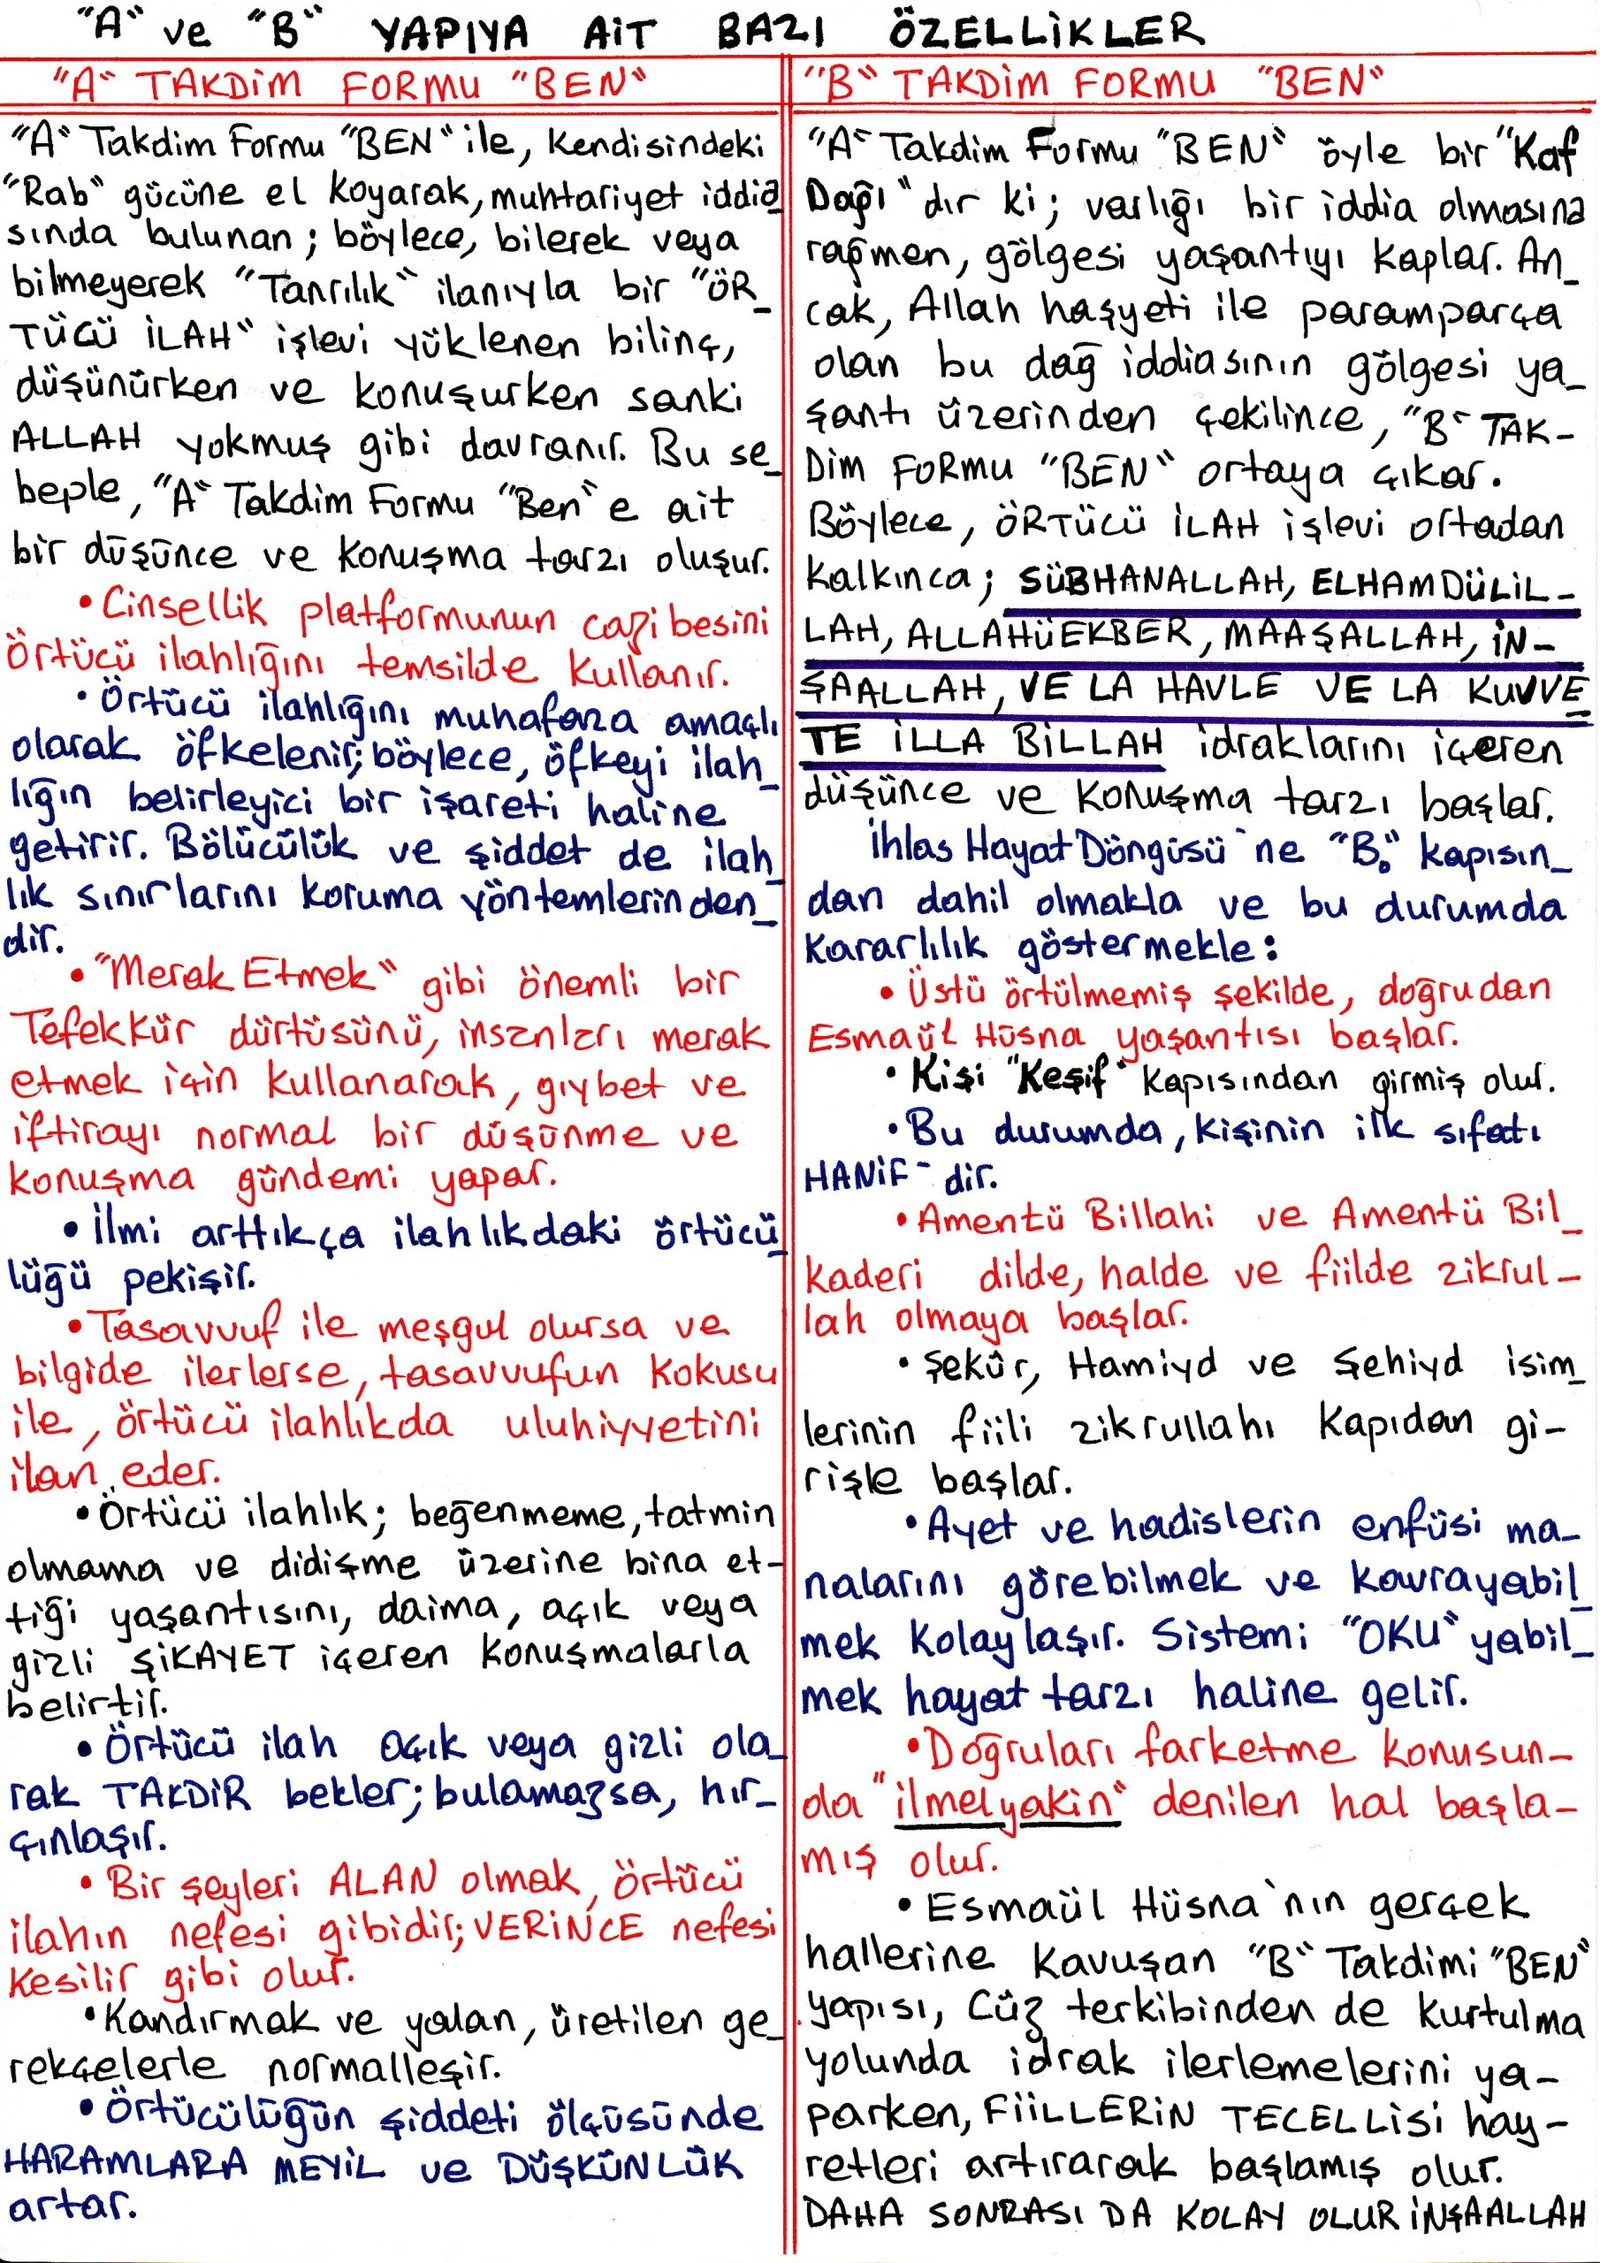 "A" ve "B" YAPIYA AİT BAZI ÖZELLİKLER
"A" TAKDİM FORMU "BEN"
"A" Takdim Formu "BEN" ile, kendisindeki
"Rab" gücüne el koyarak, muhtariyet iddia
sında bulunan; böylece, bilerek veya
bilmeyerek "Tanrılık" ilanıyla bir "ÖR_
TÜCÜ İLAH" işlevi yüklenen bilinç,
düşünürken ve konuşurken sanki
ALLAH yokmuş gibi davranır. Bu se_
beple, "A" Takdim Formu "Ben"e ait
bir düşünce ve konuşma tarzı oluşur.
• Cinsellik platformunun cazibesini
Örtücü ilahlığını temsilde kullanır.
• Örtücü ilahlığını muhafaza amaçlı
olarak öfkelenir; böylece, öfkeyi ilah_
lığın belirleyici bir işareti haline
getirir. Bölücülük ve şiddet de ilah_
lık sınırlarını koruma yöntemlerinden_
dir.
• "Merak Etmek" gibi önemli bir
Tefekkür dürtüsünü, insanları merak
etmek için kullanarak, gıybet ve
iftirayı normal bir düşünme ve
konuşma gündemi yapar.
• İlmi arttıkça ilahlıkdaki örtücü_
lüğü pekişir.
• Tasavvuf ile meşgul olursa ve
bilgide ilerlerse, tasavvufun kokusu
ile, örtücü ilahlıkda uluhiyyetini
ilan eder.
• Örtücü ilahlık; beğenmeme, tatmin
olmama ve didişme üzerine bina et-
tiği yaşantısını, daima, açık veya
gizli ŞİKAYET içeren konuşmalarla
belirtir.
• Örtücü ilah açık veya gizli ola_
rak TAKDİR bekler; bulamazsa, hır_
çınlaşır.
• Bir şeyleri ALAN olmak, örtücü
ilahın nefesi gibidir; VERİNCE nefesi
kesilir gibi olur.
• Kandırmak ve yalan, üretilen ge_
rekçelerle normalleşir.
• Örtücülüğün şiddeti ölçüsünde
HARAMLARA MEYİL ve DÜŞKÜNLÜK
artar.
"B" TAKDİM FORMU "BEN"
"A" Takdim Formu "BEN" öyle bir "Kaf
Dağı"dır ki; varlığı bir iddia olmasına
rağmen, gölgesi yaşantıyı kaplar. An_
cak, Allah haşyeti ile paramparça
olan bu dağ iddiasının gölgesi ya_
şantı üzerinden çekilince, "B" TAK-
DİM FORMU "BEN" ortaya çıkar.
Böylece, ÖRTÜCÜ İLAH işlevi ortadan
kalkınca; SÜBHANALLAH, ELHAMDÜLİL-
LAH, ALLAHÜEKBER, MAAŞALLAH, İN-
ŞAALLAH, VE LA HAVLE VE LA KUVVE_
TE İLLA BİLLAH idraklarını içeren
düşünce ve konuşma tarzı başlar.
İhlas Hayat Döngüsü'ne "B." kapısın_
dan dahil olmakla ve bu durumda
kararlılık göstermekle:
• Üstü örtülmemiş şekilde, doğrudan
Esmaül Hüsna yaşantısı başlar.
• Kişi "Keşif" kapısından girmiş olur.
• Bu durumda, kişinin ilk sıfatı
HANİF-dir.
• Amentü Billahi ve Amentü Bil_
kaderi dilde, halde ve fiilde zikrul-
lah olmaya başlar.
• Şekûr, Hamiyd ve Şehiyd isim_
lerinin fiili zikrullahı kapıdan gi-
rişle başlar.
• Ayet ve hadislerin enfüsi ma-
nalarını görebilmek ve kavrayabil_
mek kolaylaşır. Sistemi "OKU"yabil_
mek hayat tarzı haline gelir.
• Doğruları farketme konusun-
da "ilmelyakin" denilen hal başla-
mış olur.
• Esmaül Hüsna'nın gerçek
hallerine kavuşan "B" Takdimi "BEN"
yapısı, Cüz terkibinden de kurtulma
yolunda idrak ilerlemelerini ya-
parken, FİİLLERİN TECELLİSİ hay-
retleri artırarak başlamış olur.
DAHA SONRASI DA KOLAY OLUR İNŞAALLAH